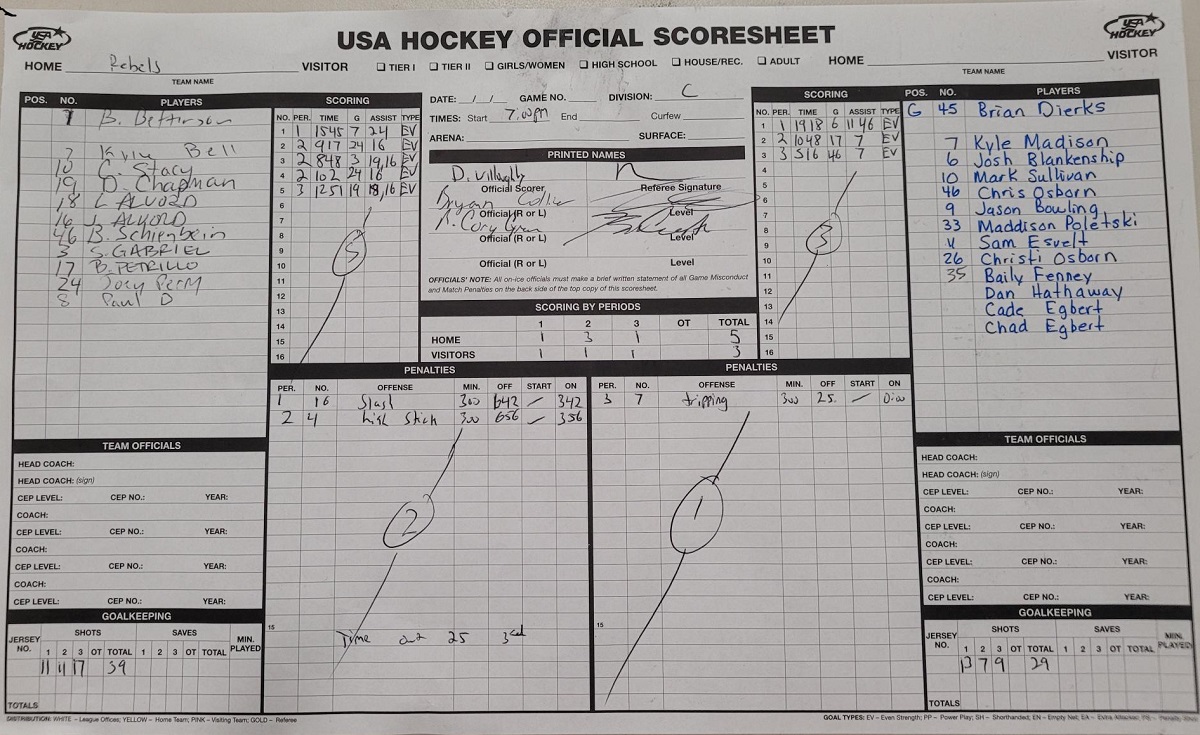 USA HOCKEY
USA HOCKEY OFFICIAL SCORESHEET
USA HOCKEY
HOME Rebels VISITOR
TEAM NAME
TIER I TIER II GIRLS/WOMEN HIGH SCHOOL HOUSE/REC. ADULT
HOME VISITOR
TEAM NAME
POS. NO. PLAYERS
1 B. Betterson
7 Kyle Bell
10 C. Stacy
19 D. Chapman
18 L ALVORD
16 J. ALVORD
46 B. Schienbein
3 S. GABRIEL
17 B. PETRILLO
24 Joey Perry
8 Paul D
SCORING
NO. PER. TIME G ASSIST TYPE
1 1 1545 7 24 EV
2 2 917 24 16 EV
3 2 848 3 19,16 EV
4 2 102 24 16 EV
5 3 1251 19 18,16 EV
6
7
8
9
10
11
12
13
14
15
16
5
DATE: / / GAME NO. DIVISION: C
TIMES: Start 7:00pm End Curfew
ARENA: SURFACE:
PRINTED NAMES
D. Willoughby
Official Scorer Referee Signature
Bryan
Official (R or L) Level
R. Cory
Official (R or L) Level
Official (R or L) Level
OFFICIALS' NOTE: All on-ice officials must make a brief written statement of all Game Misconduct
and Match Penalties on the back side of the top copy of this scoresheet.
SCORING BY PERIODS
1 2 3 OT TOTAL
HOME 1 3 1 5
VISITORS 1 1 1 3
SCORING
NO. PER. TIME G ASSIST TYPE
1 1 1918 6 11 46 EV
2 2 1048 17 7 EV
3 3 516 46 7 EV
4
5
6
7
8
9
10
11
12
13
14
15
16
3
POS. NO. PLAYERS
G 45 Brian Dierks
7 Kyle Madison
6 Josh Blankenship
10 Mark Sullivan
46 Chris Osborn
9 Jason Bowling
33 Maddison Poletski
11 Sam Esvelt
26 Christi Osborn
35 Baily Fenney
Dan Hathaway
Cade Egbert
Chad Egbert
PENALTIES
PER. NO. OFFENSE MIN. OFF START ON
1 16 Slash 300 642 / 342
2 4 high stick 300 656 / 356
2
15
Time out 25 3rd
PENALTIES
PER. NO. OFFENSE MIN. OFF START ON
3 7 tripping 300 25. / 0:00
1
15
TEAM OFFICIALS
HEAD COACH:
HEAD COACH: (sign)
CEP LEVEL: CEP NO.: YEAR:
COACH:
CEP LEVEL: CEP NO.: YEAR:
COACH:
CEP LEVEL: CEP NO.: YEAR:
COACH:
CEP LEVEL: CEP NO.: YEAR:
GOALKEEPING
JERSEY NO. SHOTS SAVES MIN. PLAYED
1 2 3 OT TOTAL 1 2 3 OT TOTAL
11 11 17 39
TOTALS
TEAM OFFICIALS
HEAD COACH:
HEAD COACH: (sign)
CEP LEVEL: CEP NO.: YEAR:
COACH:
CEP LEVEL: CEP NO.: YEAR:
COACH:
CEP LEVEL: CEP NO.: YEAR:
COACH:
CEP LEVEL: CEP NO.: YEAR:
GOALKEEPING
JERSEY NO. SHOTS SAVES MIN. PLAYED
1 2 3 OT TOTAL 1 2 3 OT TOTAL
13 7 9 29
TOTALS
DISTRIBUTION: WHITE – League Offices; YELLOW – Home Team; PINK – Visiting Team; GOLD – Referee
GOAL TYPES: EV – Even Strength; PP – Power Play; SH – Shorthanded; EN – Empty Net; EA – Extra Attacker; PS – Penalty Shot